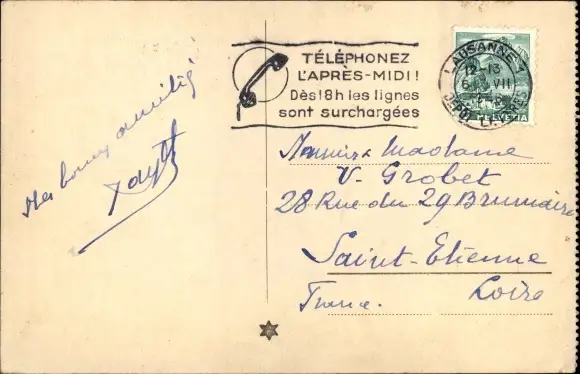 Mes bonnes amitiés
TÉLÉPHONEZ
L'APRÈS-MIDI!
Dès 18h les lignes
sont surchargées
LAUSANNE
12-13
VII
HELVETIA
Monsieur & Madame
V. Grobet
28 Rue du 29 Brumaire
Saint-Etienne
Loire
France.